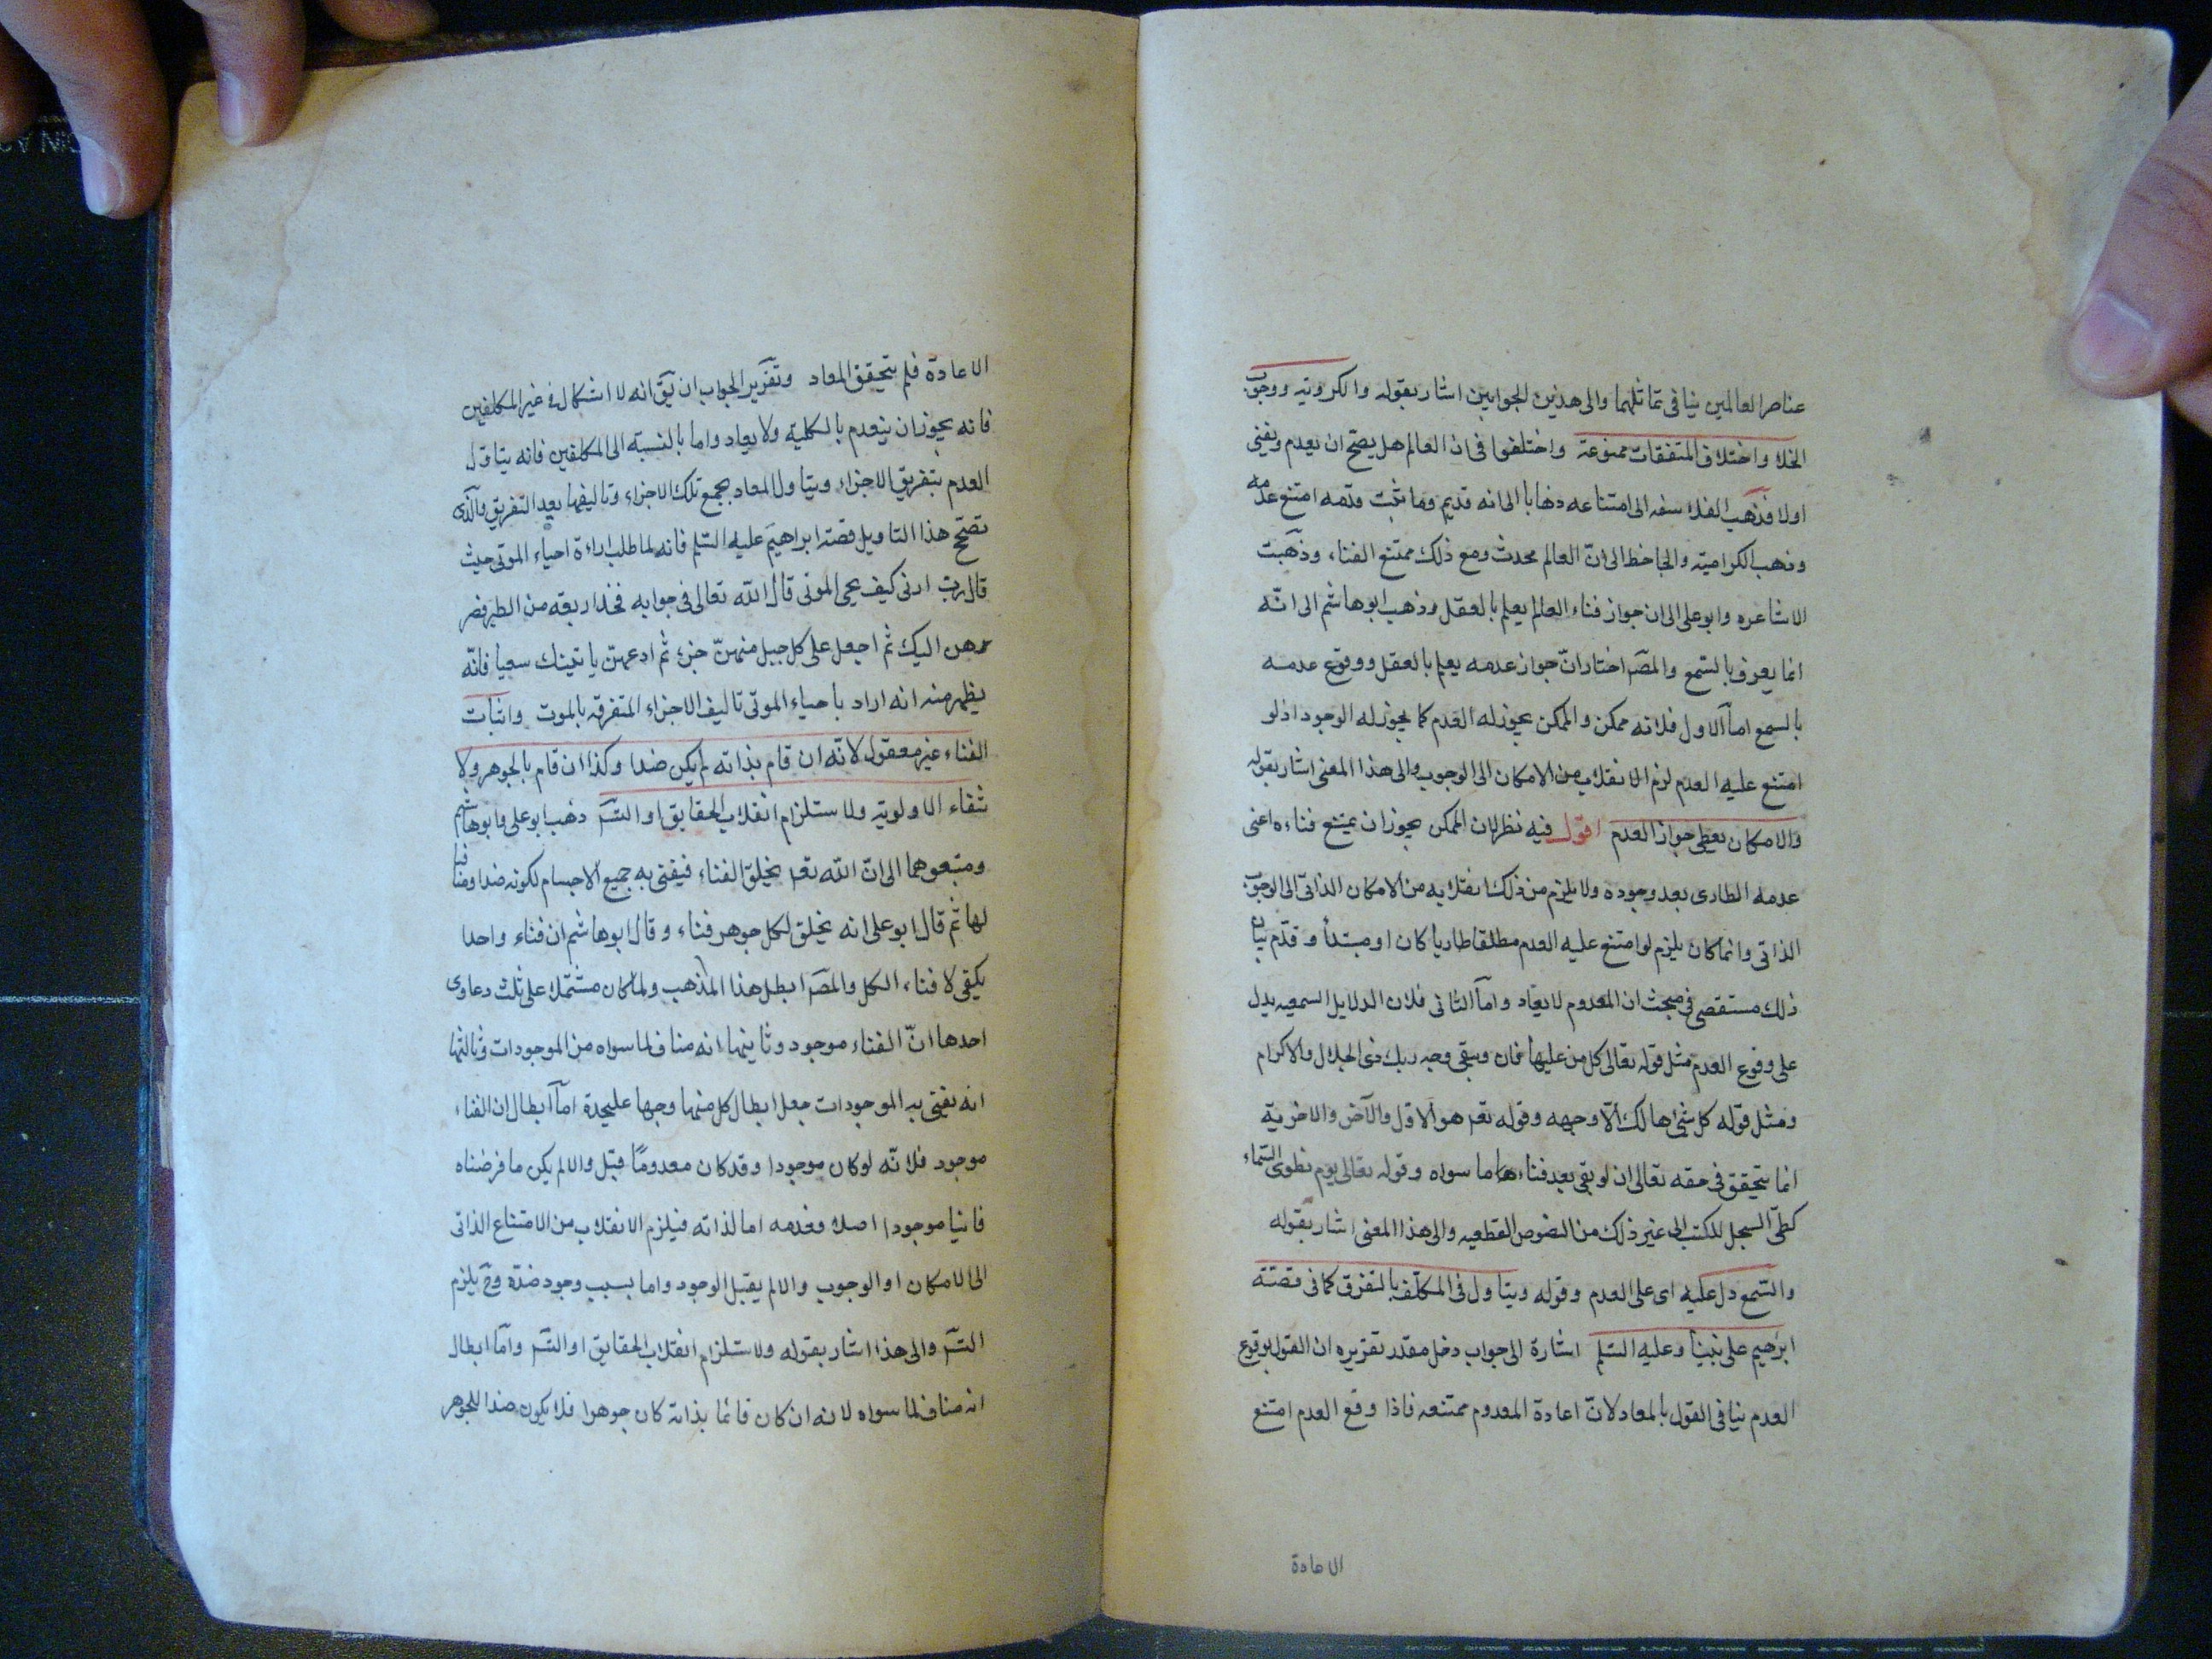 عناصر العالمين ينافى تماثلهما والى هذين الجوابين اشار بقوله والكروية ووجوب
الخلا واختلاف المتفقات ممنوعة واختلفوا فى ان العالم هل يصح ان يعدم ويفنى
اولا فذهب الفلاسفه الى امتناعه ذهابا الى انه قديم وما ثبت قدمه امتنع عدمه
وذهب الكرامية والجاحظ الى انّ العالم محدث ومع ذلك ممتنع الفناء وذهبت
الاشاعره وابو على الى ان جواز فناء العالم يعلم بالعقل وذهب ابو هاشم الى انّه
انما يعرف بالسّمع والمصَ اختار انّ جواز عدمه يعلم بالعقل ووقوع عدمه
بالسمع امّا الاول فلانه ممكن والممكن يجوز له العدم كما يجوز له الوجود اذ لو
امتنع عليه العدم لزم الانقلاب من الامكان الى الوجوب والى هذا المعنى اشار بقوله
والامكان يعطى جواز العدم اقول فيه نظر لان الممكن يجوز ان يمتنع فناءه اعنى
عدمه الطارى بعد وجوده ولا يلزم من ذلك انقلابه من الامكان الذاتى الى الوجوب
الذاتى وانما كان يلزم لو امتنع عليه العدم مطلقا طاريا كان او مبتدأ وقدّم بيان
ذلك مستقصى فى مبحث ان المعدوم لا يعاد وامّا الثانى فلان الدلايل السمعيه يدل
على وقوع العدم مثل قوله تعالى كل من عليها فان ويبقى وجه ربك ذى الجلال والاكرام
ومثل قوله كل شئ هالك الّا وجهه وقوله تعہ هو الاوّل والآخر والاخرية
انما يتحقق فى حقه تعالى ان لو بقى بعد فناء ما سواه وقوله تعالى يوم نطوى السّماء
كطىّ السجل للكتب الى غير ذلك من النصوص القطعيه والى هذا المعنى اشار بقوله
والسّمع دل عليه اى على العدم وقوله ويتاول فى المكلّف بالتفرق كما فى قصّة
ابرهيم على نبينا وعليه السّلم اشارة الى جواب دخل مقدر تقريره ان القول بوقوع
العدم ينافى القول بالمعاد لانّ اعادة المعدوم ممتنعه فاذا وقع العدم امتنع
الاعادة
الاعادة فلم يتحقق المعاد وتقرير الجواب ان يقَ انه لا اشكال فى غير المكلفين
فانه يجوز ان ينعدم بالكلية ولا يعاد واما بالنسبة الى المكلفين فانه يتاوّل
العدم بتفريق الاجزاء ويتاول المعاد بجمع تلك الاجزاء وتاليفها بعد التفريق والّذى
تصحّح هذا التاويل قصّة ابراهيم عليه السّلم فانه لما طلب اراءة احياء الموتى حيث
قال رب ارنى كيف تحى الموتى قال اللّه تعالى فى جوابه فخذ اربعة من الطير فصر
هن اليك ثم اجعل على كل جبل منهنّ جزء ثم ادعهنّ ياتينك سعيا فانّه
يظهر منه انه اراد باحياء الموتى تاليف الاجزاء المتفرقه بالموت واثبات
الفناء غير معقول لانّه ان قام بذاته لم يكن ضدا وكذا ان قام بالجوهر ولا
نتفاء الاولوية ولاستلزام انقلاب الحقايق او التسَہ ذهب ابو على وابو هاشم
ومتبعوهما الى انّ اللّه تعہ يخلق الفناء فيفنى به جميع الاجسام لكونه ضدا ومنافيا
لها ثم قال ابو على انه يخلق لكل جوهر فناء وقال ابو هاشم ان فناء واحدا
يكفى لافناء الكل والمصَ ابطل هذا المذهب ولما كان مشتملا على ثلث دعاوى
احدها انّ الفناء موجود وثانيها انه مناف لما سواه من الموجودات وثالثها
انه تفنى به الموجودات جعل ابطال كل منها وجها عليحدة امّا ابطال ان الفناء
موجود فلانّه لو كان موجودا وقد كان معدومًا قبل والا لم يكن ما فرضناه
فانيا موجودا اصلا فعدمه اما لذاته فيلزم الانقلاب من الامتناع الذاتى
الى الامكان او الوجوب والا لم يقبل الوجود واما بسبب وجود ضدّه وحَ يلزم
التسَہ والى هذا اشار بقوله ولاستلزام انقلاب الحقايق او التسَہ وامّا ابطال
انه مناف لما سواه لانه ان كان قائما بذاته كان جوهرا فلا يكون ضدا للجوهر